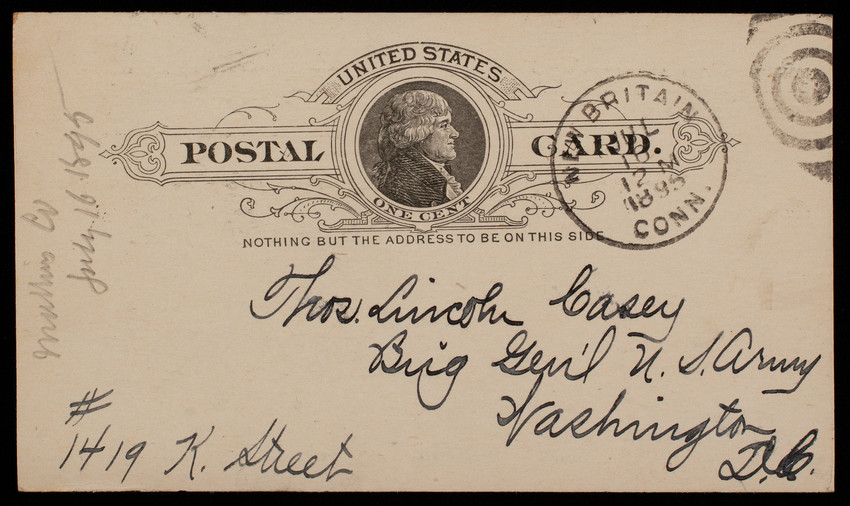 UNITED STATES
POSTAL CARD.
ONE CENT
NOTHING BUT THE ADDRESS TO BE ON THIS SIDE
NEW BRITAIN
JUL
12 M
1895
CONN.
Thos. Lincoln Casey
Brig Gen'l U. S. Army
Washington
D.C.
#
1419 K. Street
July 19 1895